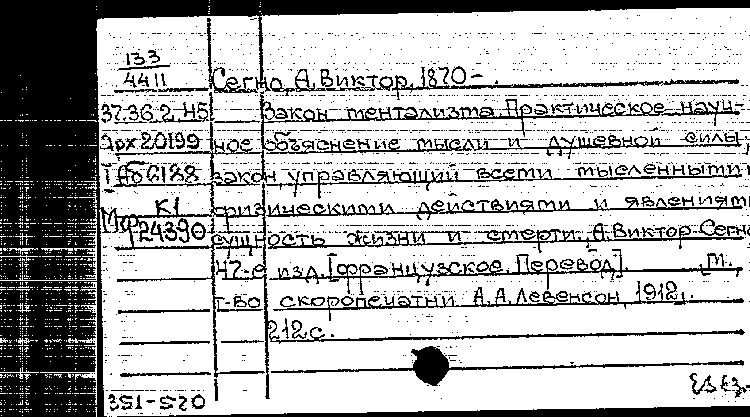 133
4411
Сегно, А. Виктор, 1870- .
37.36.2.45 Закон ментализма. Практическое науч-
Арх20199 ное объяснение мысли и душевной силы;
закон, управляющий всеми мысленными и
К1 физическими действиями и явлениями:
24390 сущность жизни и смерти. А.Виктор Сегно
47-е изд. [французское. Перевод] М.,
т-во скоропечатни А.А.Левенсон, 1912.
212 с.
351-520